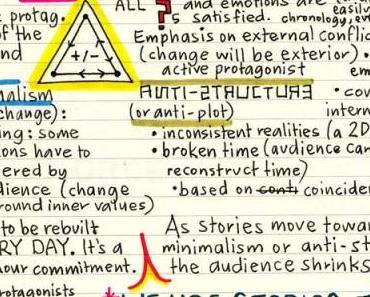 ALL ?s and emotions are easily
satisfied. chronology, ev
protag. Emphasis on external conflic
of the (change will be exterior) •
nd active protagonist em
+/-
nalism ANTI-STRUCTURE • cov
change): (or anti-plot) intern
ing: some • inconsistent realities (a 2D
ons have to • broken time (audience can
ered by reconstruct time)
dience (change • based on conti coinciden
round inner values)
to be rebuilt As stories move towar
RY DAY. It's a minimalism or anti-st
our commitment. the audience shrinks
rotagonists